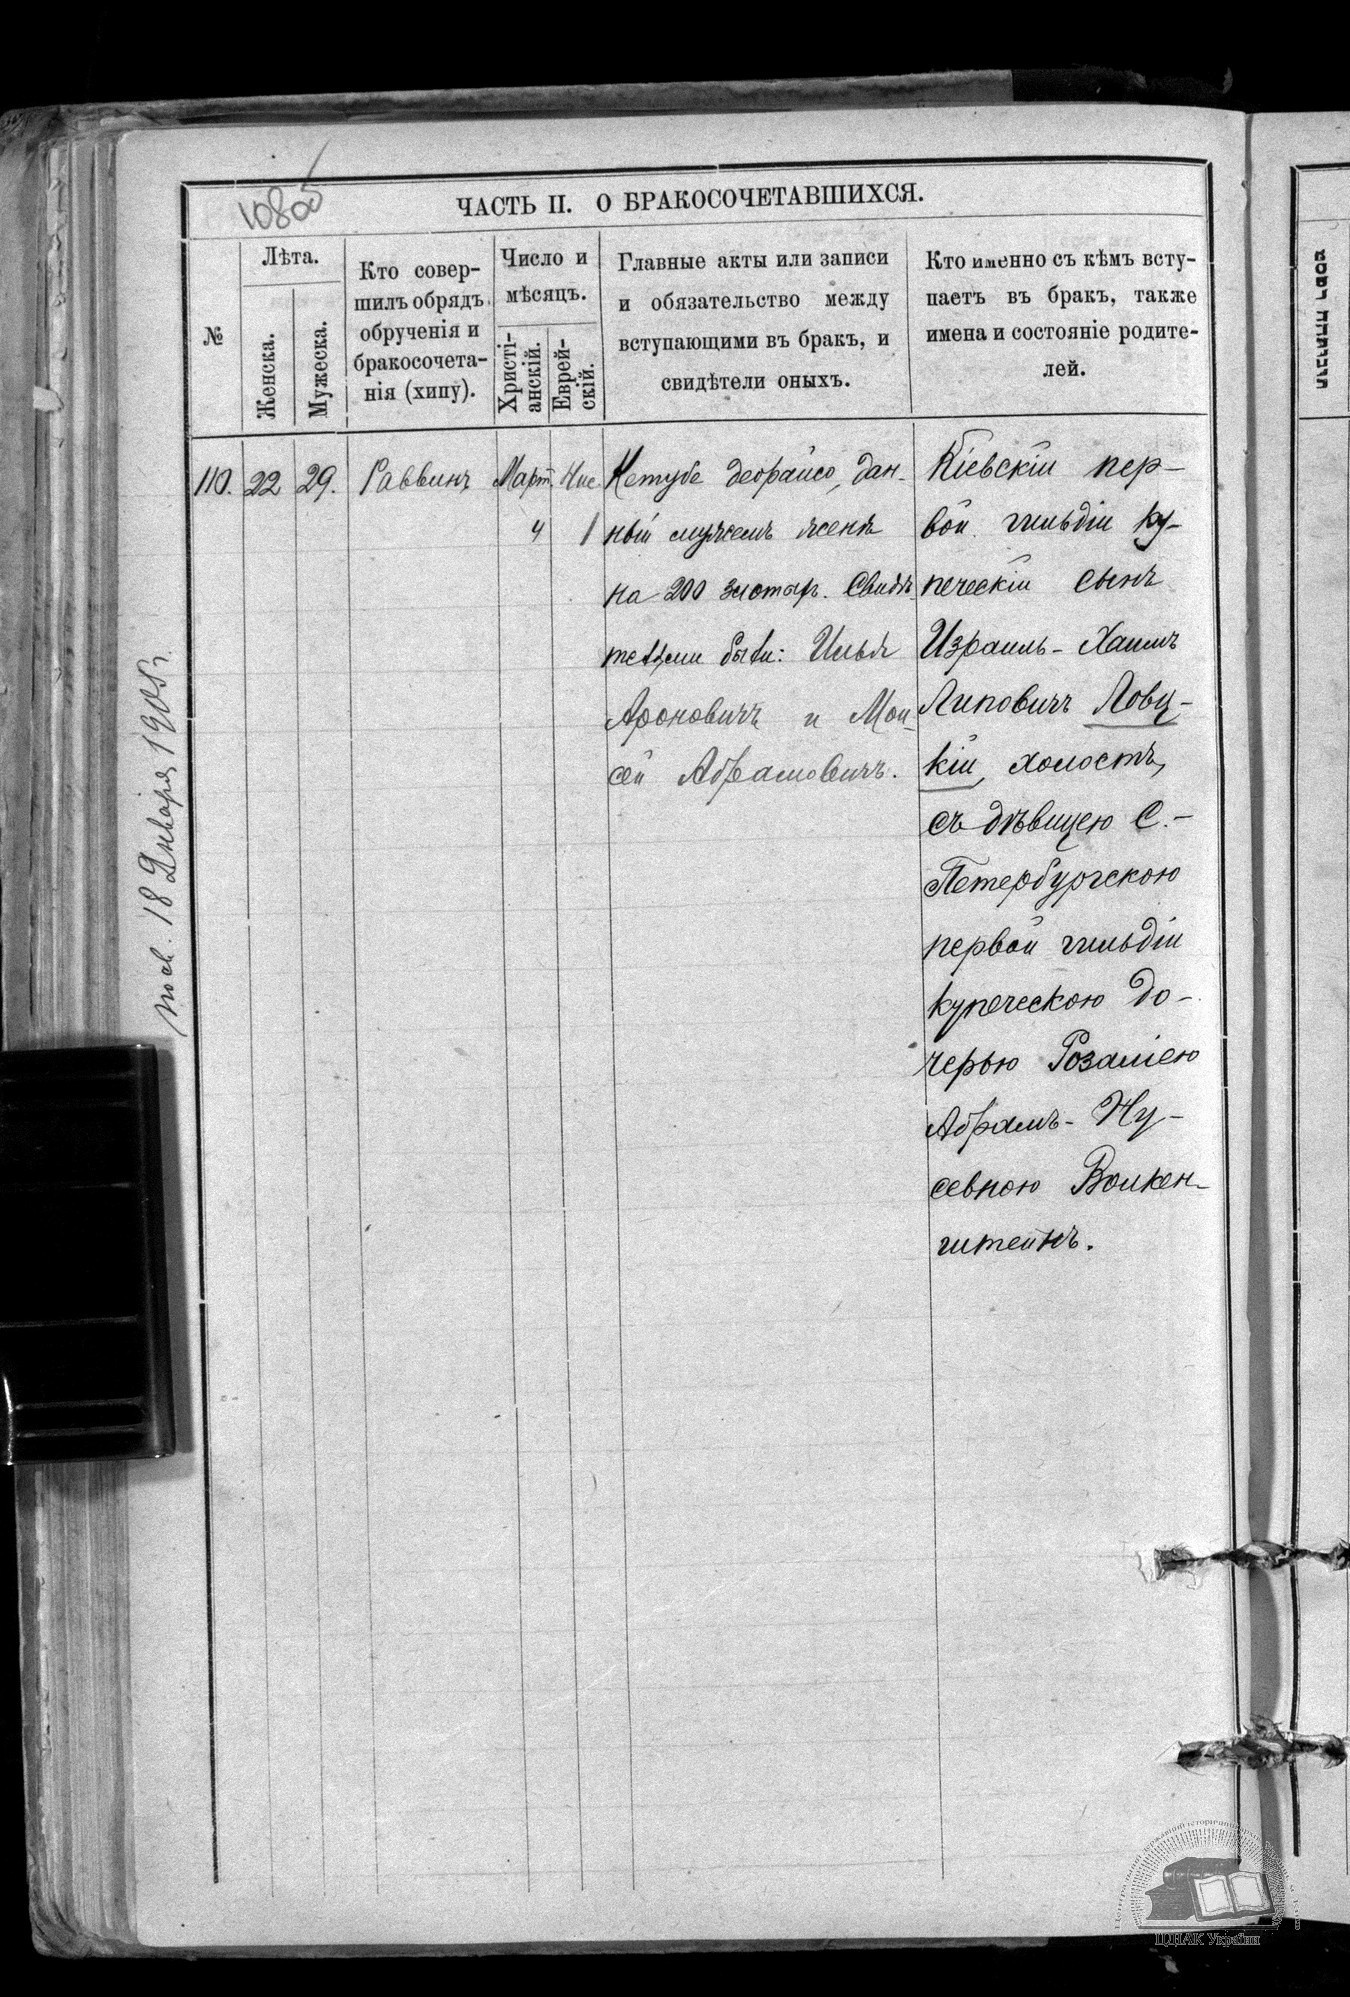 ЧАСТЬ II. О БРАКОСОЧЕТАВШИХСЯ.
№
Лѣта.
Женска.
Мужеска.
Кто совер-
шилъ обрядъ
обрученія и
бракосочета-
нія (хипу).
Число и
мѣсяцъ.
Христі-
анскій.
Еврей-
скій.
Главные акты или записи
и обязательство между
вступающими въ бракъ, и
свидѣтели оныхъ.
Кто именно съ кѣмъ всту-
паетъ въ бракъ, также
имена и состояніе родите-
лей.
110.
22
29.
Раввинъ
Март.
4
1
Кетубе деорайсо, дан-
ный мужемъ женѣ
на 200 злотыхъ. Свидѣ-
телями были: Илья
Ароновичъ и Мои-
сей Абрамовичъ.
Кіевскій пер-
вой гильдіи ку-
печескій сынъ
Израиль-Хаимъ
Липовичъ Ловц-
кій, холостъ,
съ дѣвицею С.-
Петербургскою
первой гильдіи
купеческою до-
черью Розаліею
Абрамъ-Ну-
севною Волкен-
штейнъ.
18 Января 1905 г.
ЦДІАК України